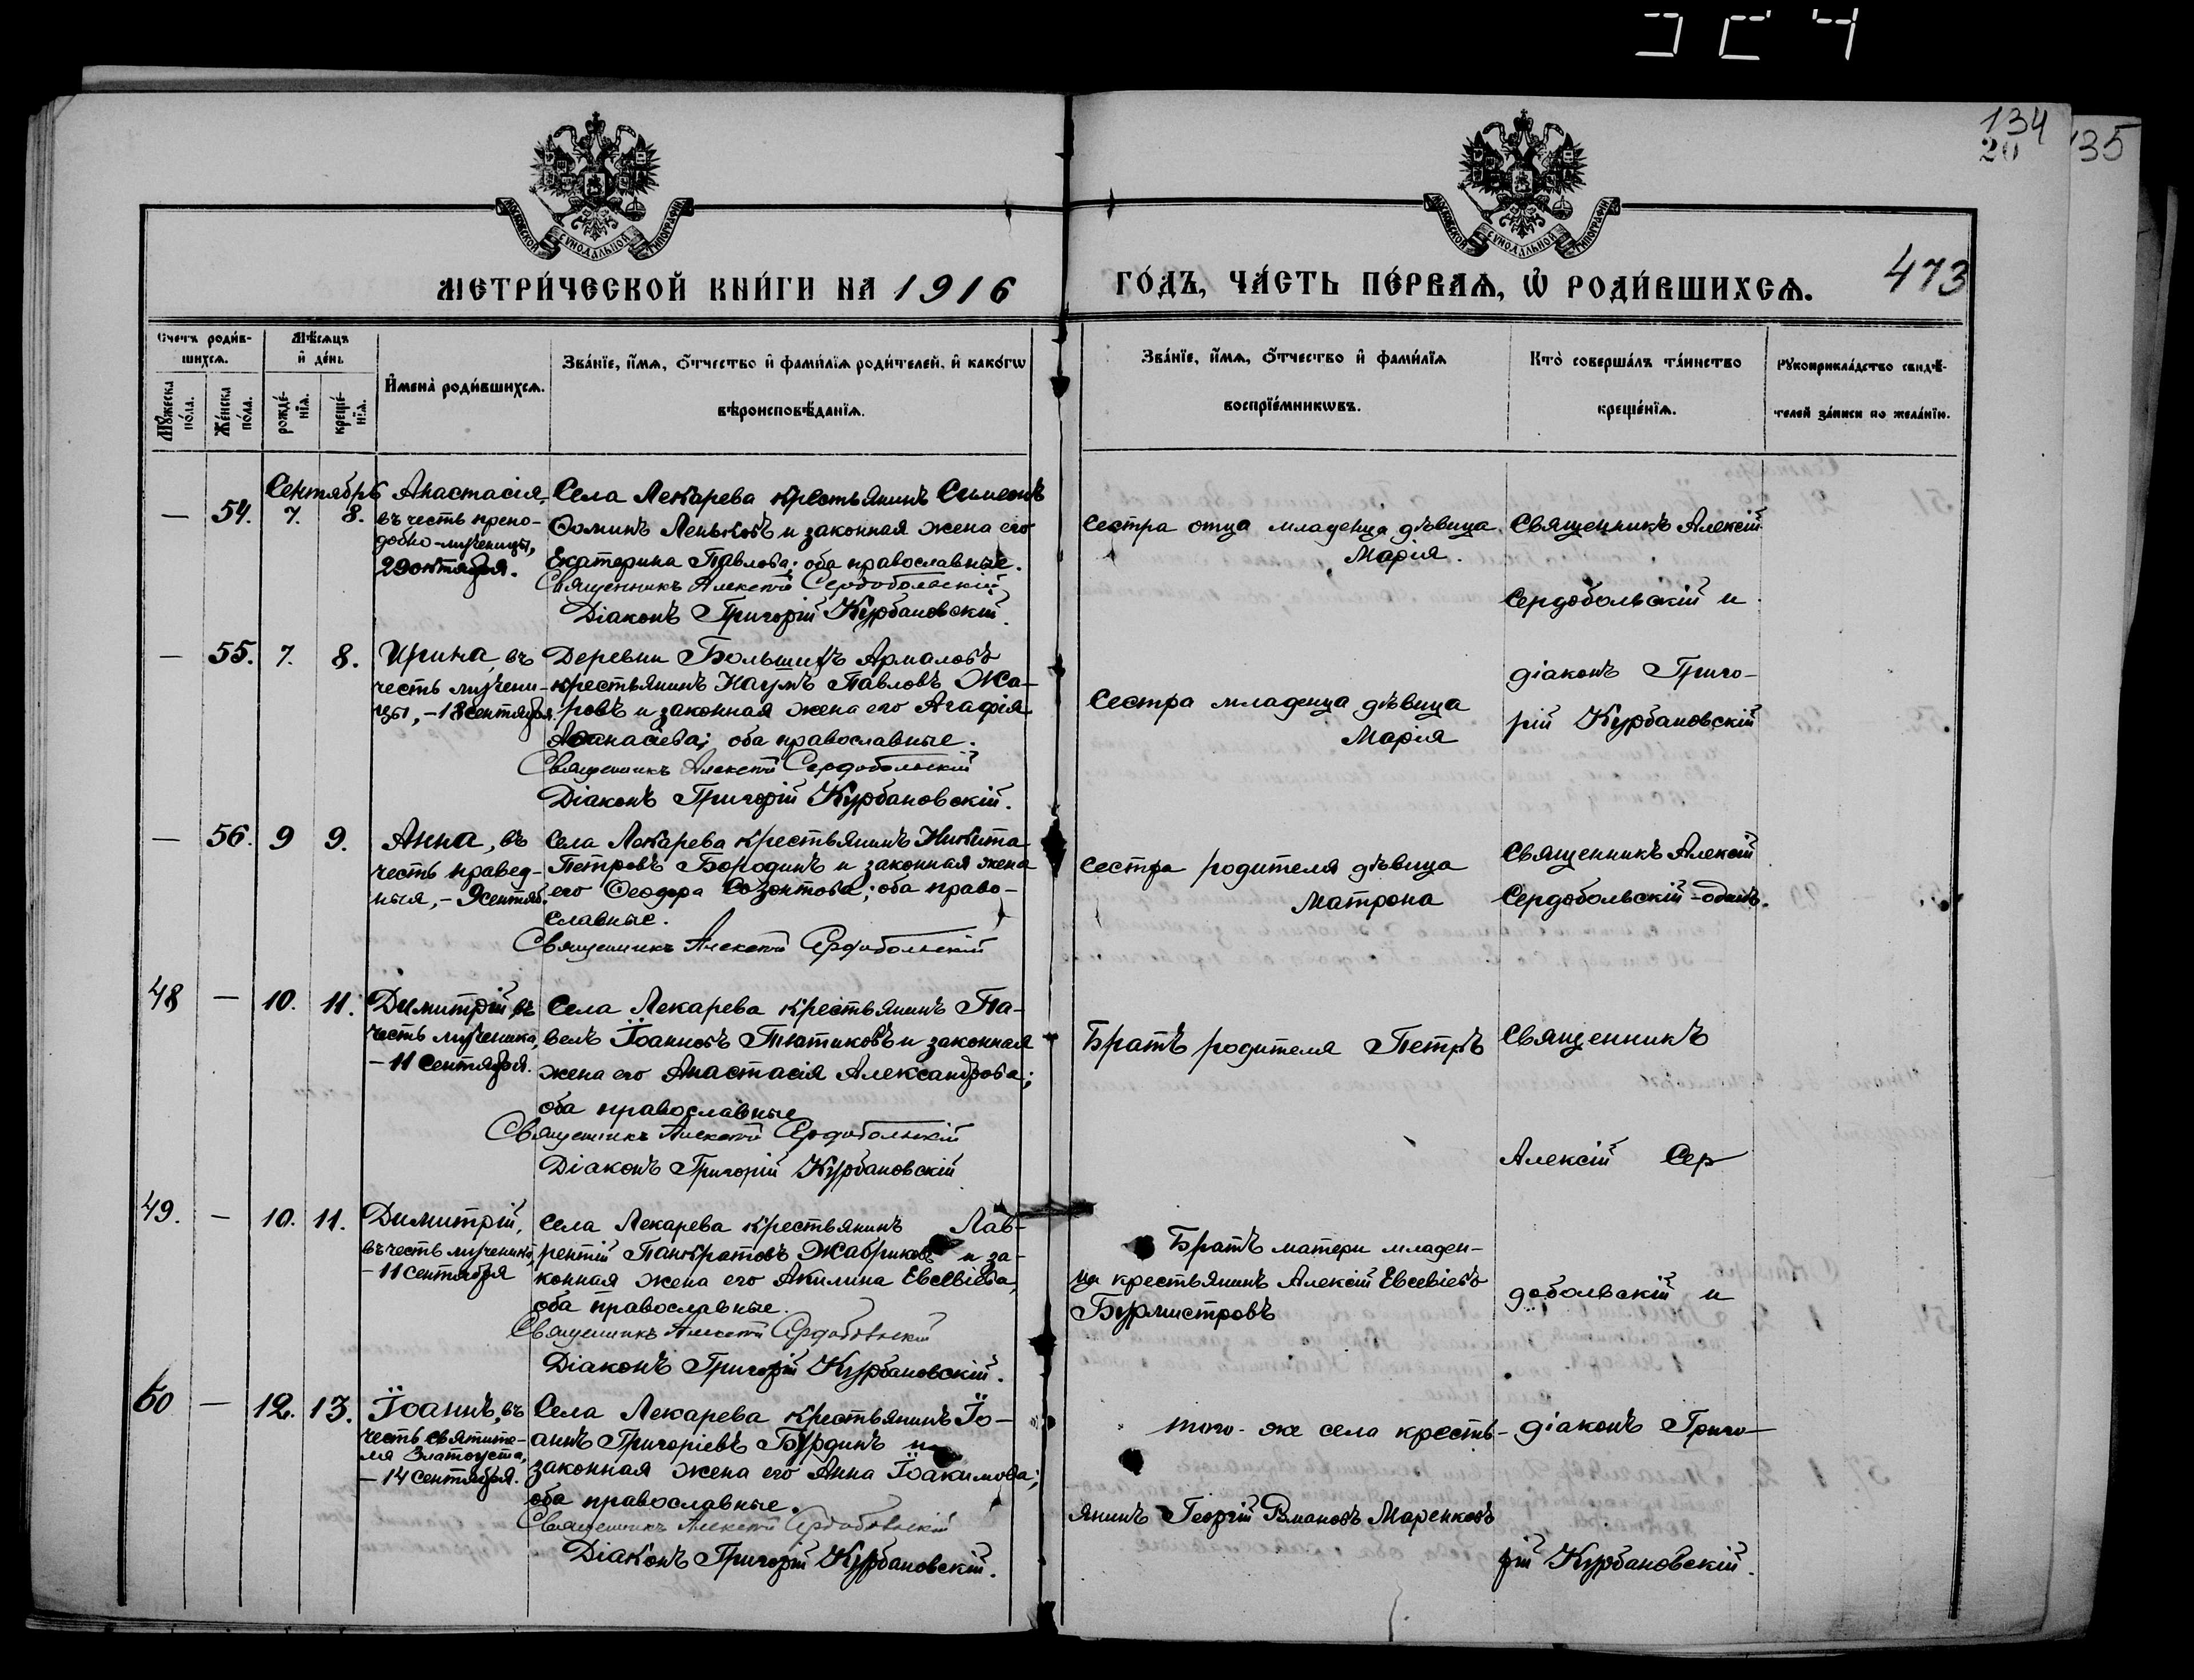 134
20
135
МОСКОВСКОЙ СѴНОДАЛЬНОЙ ТИПОГРАФІИ
МОСКОВСКОЙ СѴНОДАЛЬНОЙ ТИПОГРАФІИ
МЕТРИ́ЧЕСКОЙ КНИ́ГИ НА 1916
ГО́ДЪ, ЧА́СТЬ ПЕ́РВАѦ, Ѡ РОДИ́ВШИХСѦ.
473
Счетъ роди́в-
шихсѧ.
Мѣ́сѧцъ
и҆ де́нь
И҆мена̀ роди́вшихсѧ.
Зва́нїе, и҆́мѧ, ѻ҆́тчество и҆ фами́лїѧ роди́телей, и҆ како́гѡ
вѣроисповѣ́данїѧ.
Мꙋ́жеска
по́ла.
Же́нска
по́ла.
рожде́-
нїѧ.
креще́-
нїѧ.
Зва́нїе, и҆́мѧ, ѻ҆́тчество и҆ фами́лїѧ
воспрїе́мникѡвъ.
Кто̀ соверша́лъ та́инство
креще́нїѧ.
Рꙋкоприкла́дство свидѣ́-
телей за́писи по жела́нїю.
Сентябрь
— 54. 7. 8.
Анастасія,
въ честь препо-
добно-мученицы,
29 октября.
Села Лекарева крестьянинъ Симеонъ
Ѳоминъ Леньковъ и законная жена его
Екатерина Павлова; оба православные.
Священникъ Алексій Сердобольскій
Діаконъ Григорій Курбановскій.
Сестра отца младенца дѣвица
Марія.
Священникъ Алексій
Сердобольскій и
— 55. 7. 8.
Ирина, въ
честь мучени-
цы, – 18 сентября.
Деревни Большихъ Армаловъ
крестьянинъ Наумъ Павловъ Жа-
ровъ и законная жена его Агафія
Аѳанасіева; оба православные.
Священникъ Алексій Сердобольскій
Діаконъ Григорій Курбановскій.
Сестра младенца дѣвица
Марія
діаконъ Григо-
рій Курбановскій
— 56. 9 9.
Анна, въ
честь правед-
ныя, – 9 сентяб.
Села Лекарева крестьянинъ Никита
Петровъ Бородинъ и законная жена
его Ѳеодора Созонтова; оба право-
славные.
Священникъ Алексій Сердобольскій
Сестра родителя дѣвица
Матрона
Священникъ Алексій
Сердобольскій – одинъ.
48 — 10. 11.
Димитрій, въ
честь мученика,
– 11 сентября.
Села Лекарева крестьянинъ Па-
велъ Іоанновъ Тютиковъ и законная
жена его Анастасія Александрова;
оба православные
Священникъ Алексій Сердобольскій
Діаконъ Григорій Курбановскій
Братъ родителя Петръ
Священникъ
Алексій Сер
49. — 10. 11.
Димитрій,
въ честь мученика,
– 11 сентября
Села Лекарева крестьянинъ Лав-
рентій Панкратовъ Жабриковъ и за-
конная жена его Акилина Евсевіева,
оба православные.
Священникъ Алексій Сердобольскій
Діаконъ Григорій Курбановскій.
Братъ матери младен-
ца крестьянинъ Алексій Евсевіевъ
Бурмистровъ
добольскій и
50 — 12. 13.
Іоаннъ, въ
честь святите-
ля Златоуста,
– 14 сентября.
Села Лекарева крестьянинъ Іо-
аннъ Григоріевъ Бурдинъ и
законная жена его Анна Іоакимова;
оба православные.
Священникъ Алексій Сердобольскій
Діаконъ Григорій Курбановскій.
того-же села кресть-
янинъ Георгій Романовъ Маренковъ
діаконъ Григо-
рій Курбановскій.